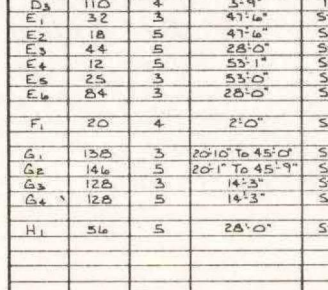 D3 110 4 3'-9"
E1 32 3 47'-6" S
E2 18 5 47'-6" S
E3 44 5 28'-0" S
E4 12 5 53'-1" S
E5 25 3 53'-0" S
E6 84 3 28'-0" S
F1 20 4 2'-0" S
G1 138 3 20'-10" To 45'-0" S
G2 146 5 20'-1" To 45'-9" S
G3 128 3 14'-3" S
G4 128 5 14'-3" S
H1 56 5 28'-0" S